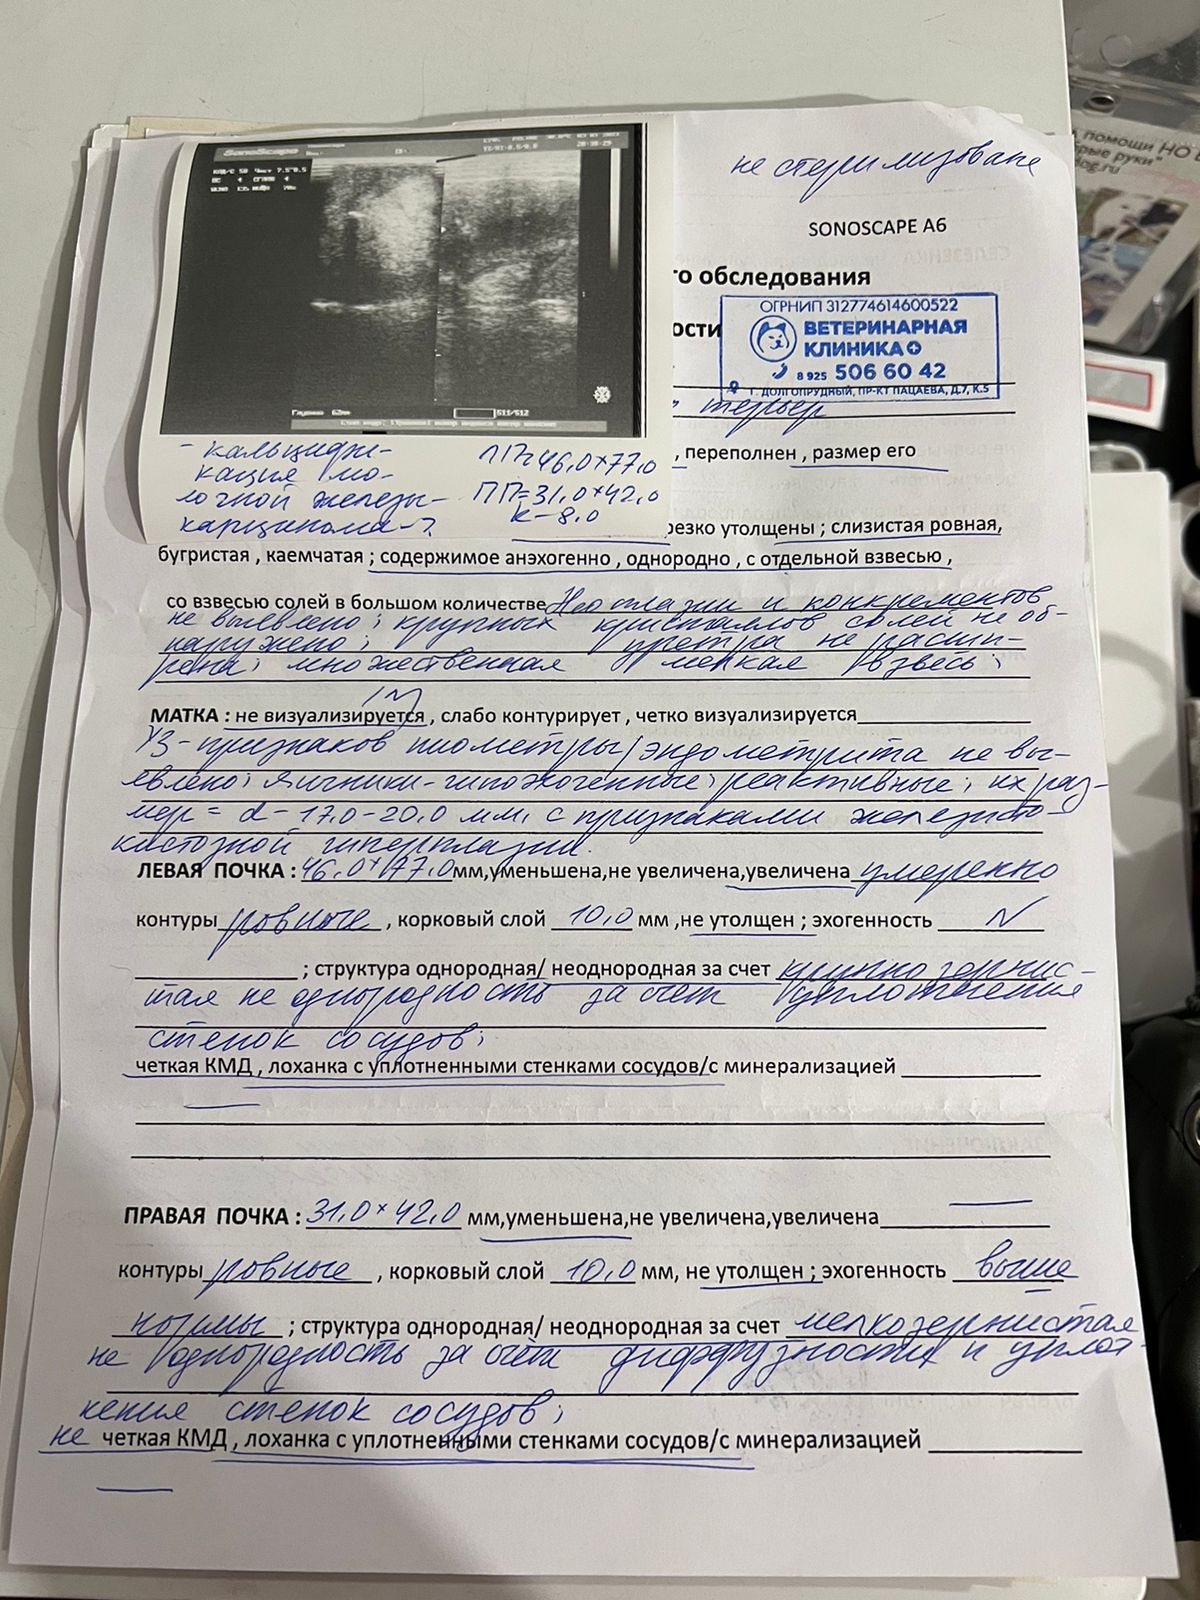 не стерилизована
SONOSCAPE A6
го обследования
ости
ОГРНИП 312774614600522
ВЕТЕРИНАРНАЯ
КЛИНИКА
8 925 506 60 42
Г. ДОЛГОПРУДНЫЙ, ПР-КТ ПАЦАЕВА, Д.7, К.5
терьер
SonoScape
20:38:29
511/512
- кальцифи-
кация мо-
лочной железы-
карцинома-?
ЛП=46,0×77,0
ПП=31,0×42,0
к-8,0
, переполнен , размер его
резко утолщены ; слизистая ровная,
бугристая , каемчатая ; содержимое анэхогенно , однородно , с отдельной взвесью ,
со взвесью солей в большом количестве Неоплазии и конкрементов
не выявлено; крупных кристаллов солей не об-
наружено; уретра не расши-
рена; множественная мелкая взвесь;
МАТКА : не визуализируется , слабо контурирует , четко визуализируется
УЗ-признаков пиометры/эндометрита не вы-
явлено; яичники-гипоэхогенные; реактивные; их раз-
мер = d-17,0-20,0 мм, с признаками железисто-
кистозной гиперплазии.
ЛЕВАЯ ПОЧКА : 46,0×77,0 мм,уменьшена,не увеличена,увеличена умеренно
контуры ровные , корковый слой 10,0 мм ,не утолщен ; эхогенность N
; структура однородная/ неоднородная за счет крупнозернис-
тая неоднородность за счет уплотнения
стенок сосудов;
четкая КМД , лоханка с уплотненными стенками сосудов/с минерализацией
ПРАВАЯ ПОЧКА : 31,0×42,0 мм,уменьшена,не увеличена,увеличена
контуры ровные , корковый слой 10,0 мм, не утолщен ; эхогенность выше
нормы ; структура однородная/ неоднородная за счет мелкозернистая
неоднородность за счёт диффузности и уплот-
нения стенок сосудов;
не четкая КМД , лоханка с уплотненными стенками сосудов/с минерализацией